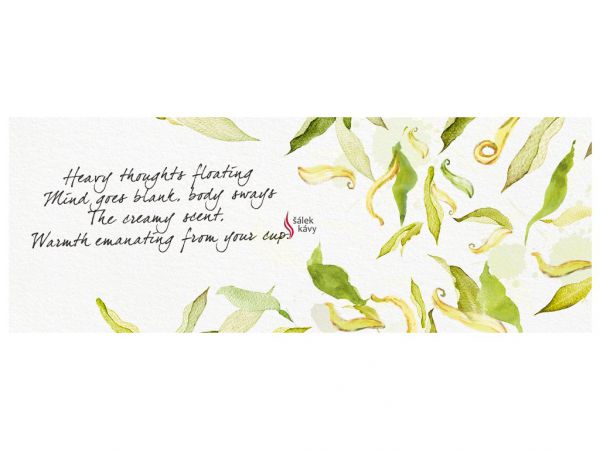 Heavy thoughts floating
Mind goes blank, body sways
The creamy scent,
Warmth emanating from your cup.
šálek
kávy